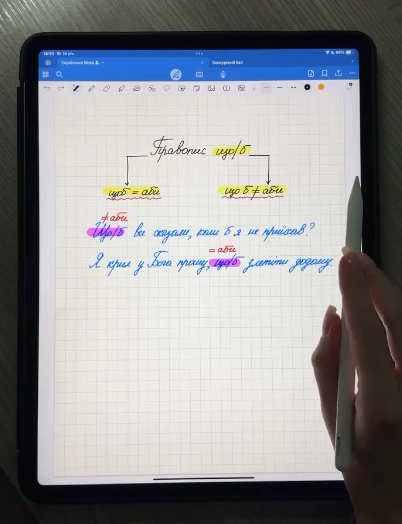 Українська Мова
Конкурсний бал
Правопис що/б
щоб = аби
що б ≠ аби
≠ аби
Що/б ви сказали, коли б я не приїхав?
= аби
Я крил у Бога прошу, що/б злетіти додому.